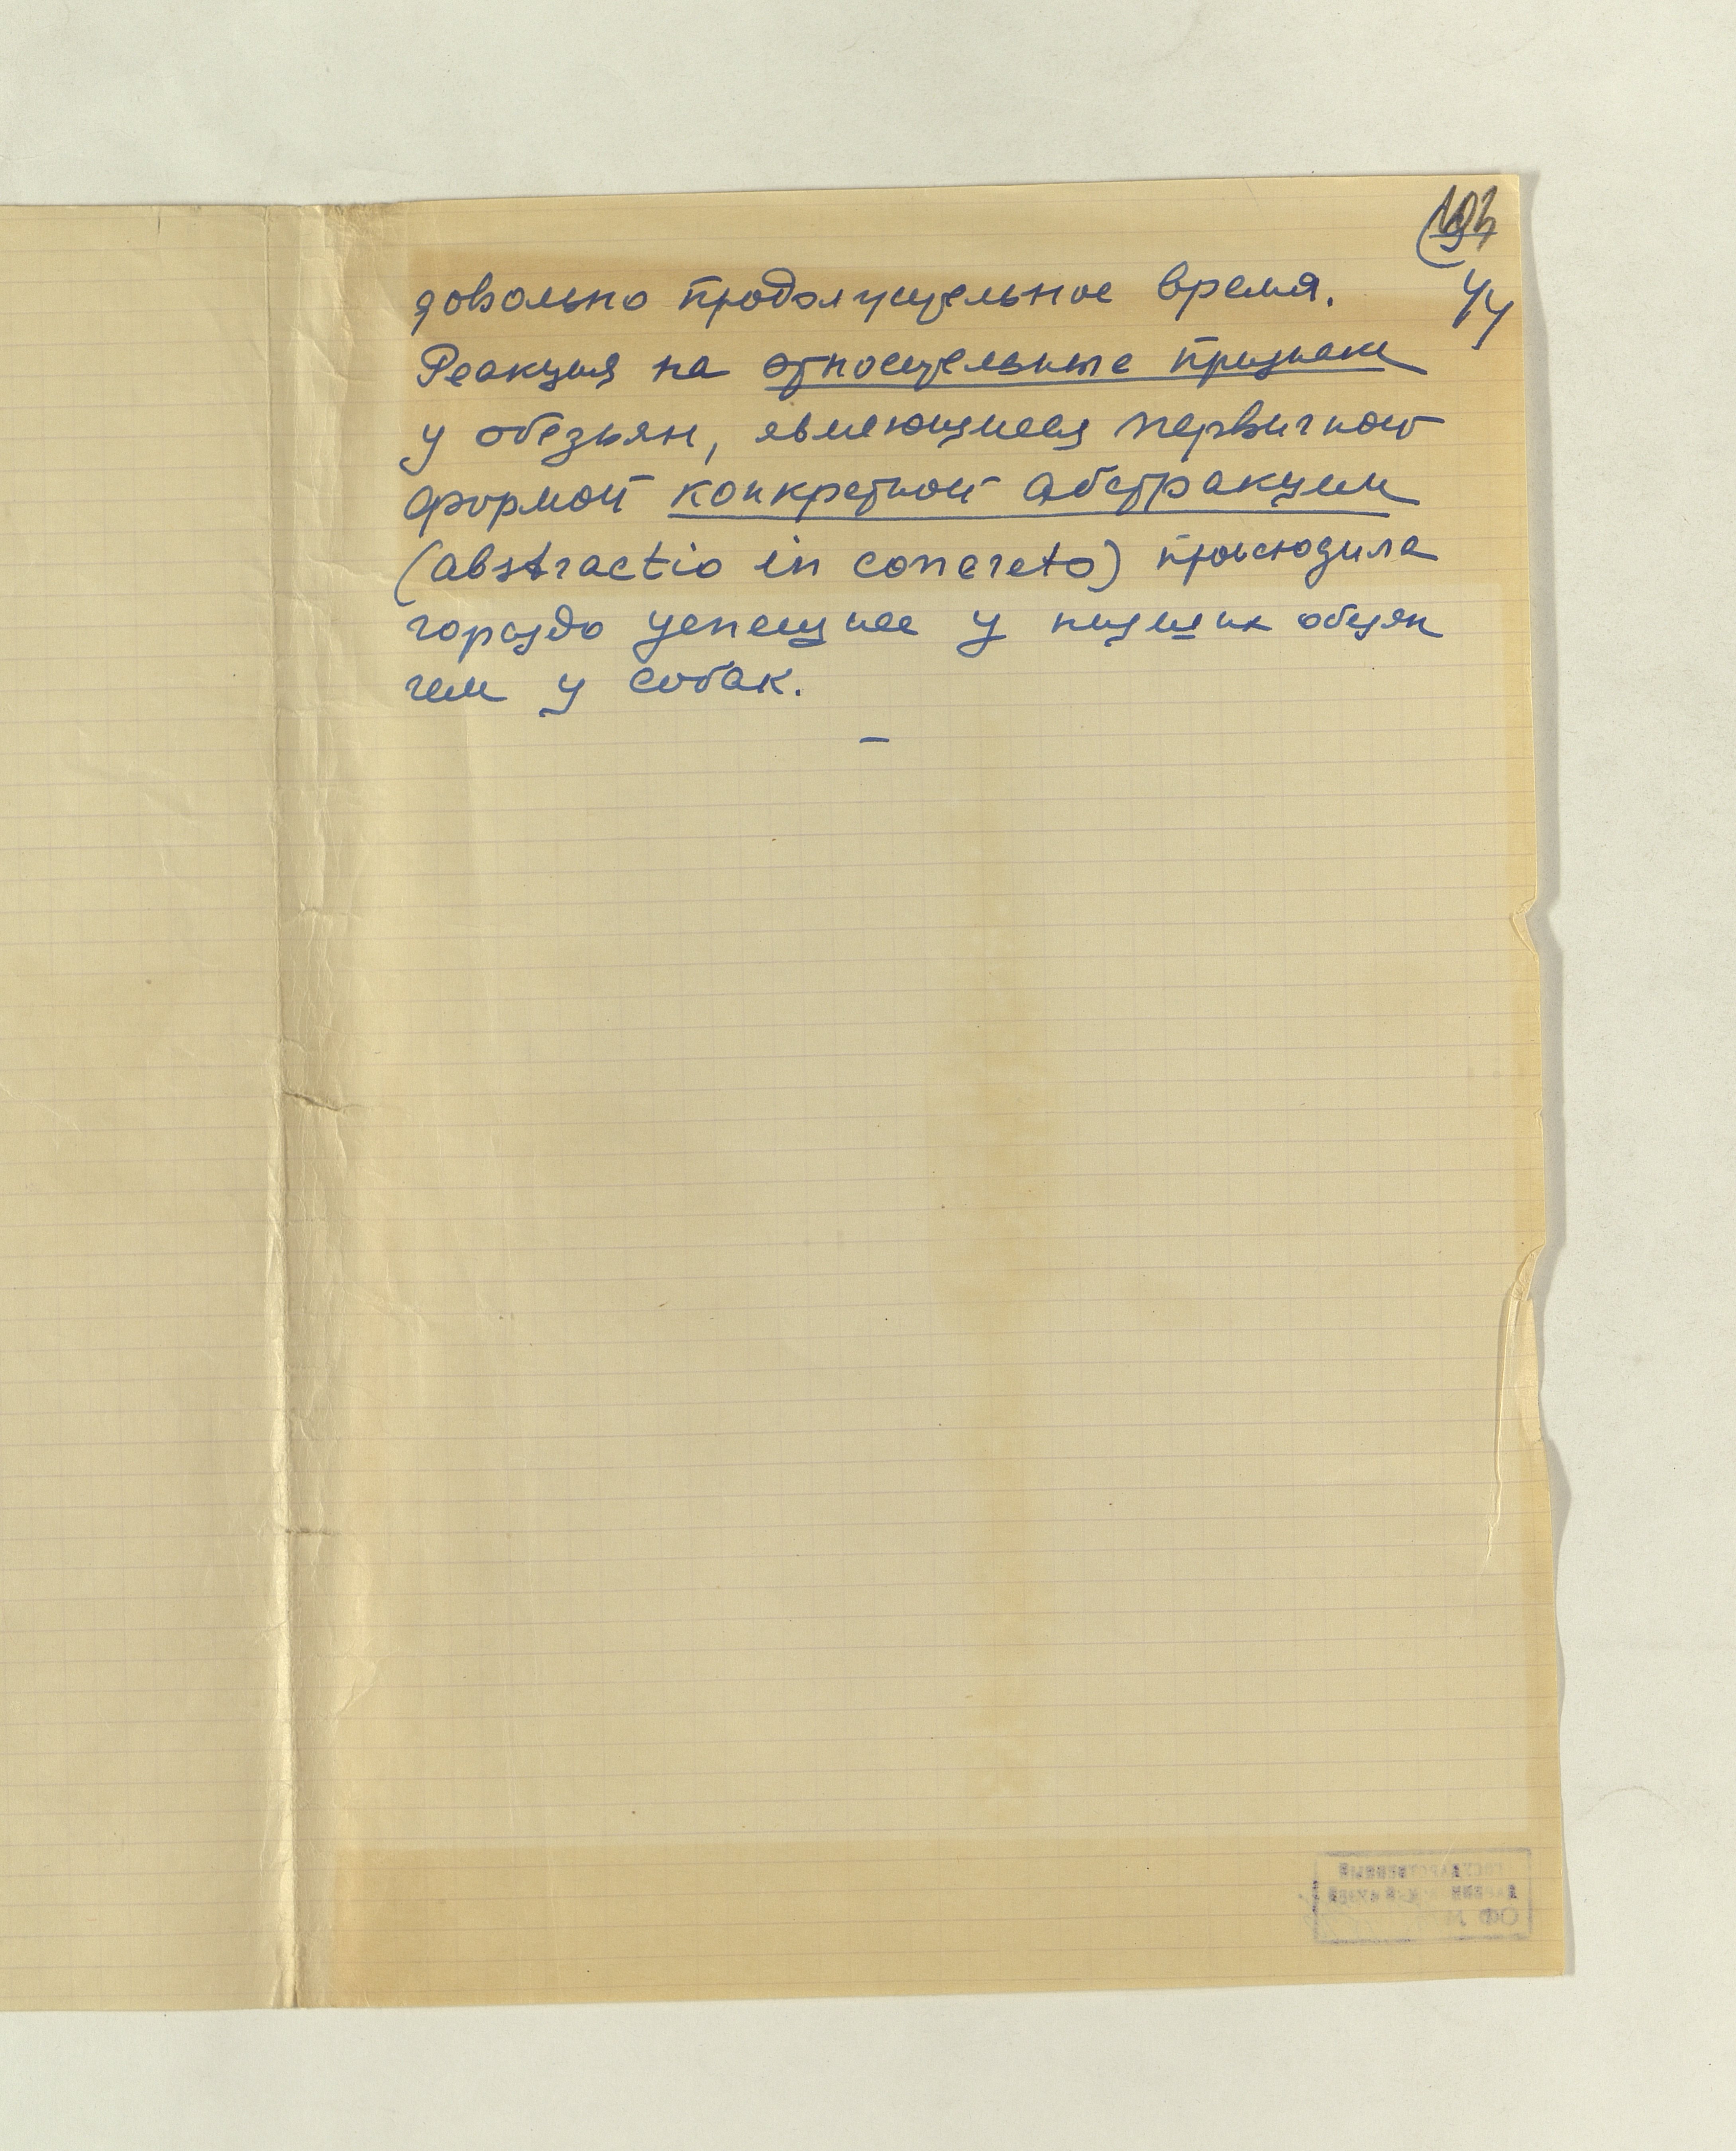 44
довольно продолжительное время.
Реакция на относительные признаки
у обезьян, являющиеся первичной
формой конкретной абстракции
(abstractio in concreto) происходила
гораздо успешнее у низших обезьян
чем у собак.
–
ГОСУДАРСТВЕННЫЙ
ДАРВИНОВСКИЙ МУЗЕЙ
ОФ №